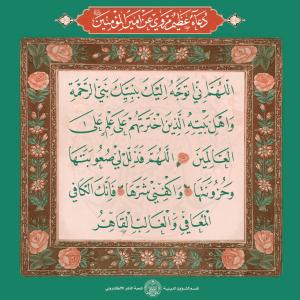 دُعَاءٌ عَظِيمٌ مَرْوِيٌّ عَنْ أَمِيرِ الْمُؤْمِنِينَ
اللَّهُمَّ إِنِّي أَتَوَجَّهُ إِلَيْكَ بِنَبِيِّكَ نَبِيِّ الرَّحْمَةِ
وَأَهْلِ بَيْتِهِ الَّذِينَ اخْتَرْتَهُمْ عَلَى عِلْمٍ عَلَى
الْعَالَمِينَ اللَّهُمَّ فَذَلِّلْ لِي صُعُوبَتَهَا
وَحُزُونَتَهَا وَاكْفِنِي شَرَّهَا فَإِنَّكَ الْكَافِي
الْمُعَافِي وَالْغَالِبُ الْقَاهِرُ
قسم الشؤون الدينية
شعبة النشر الالكتروني